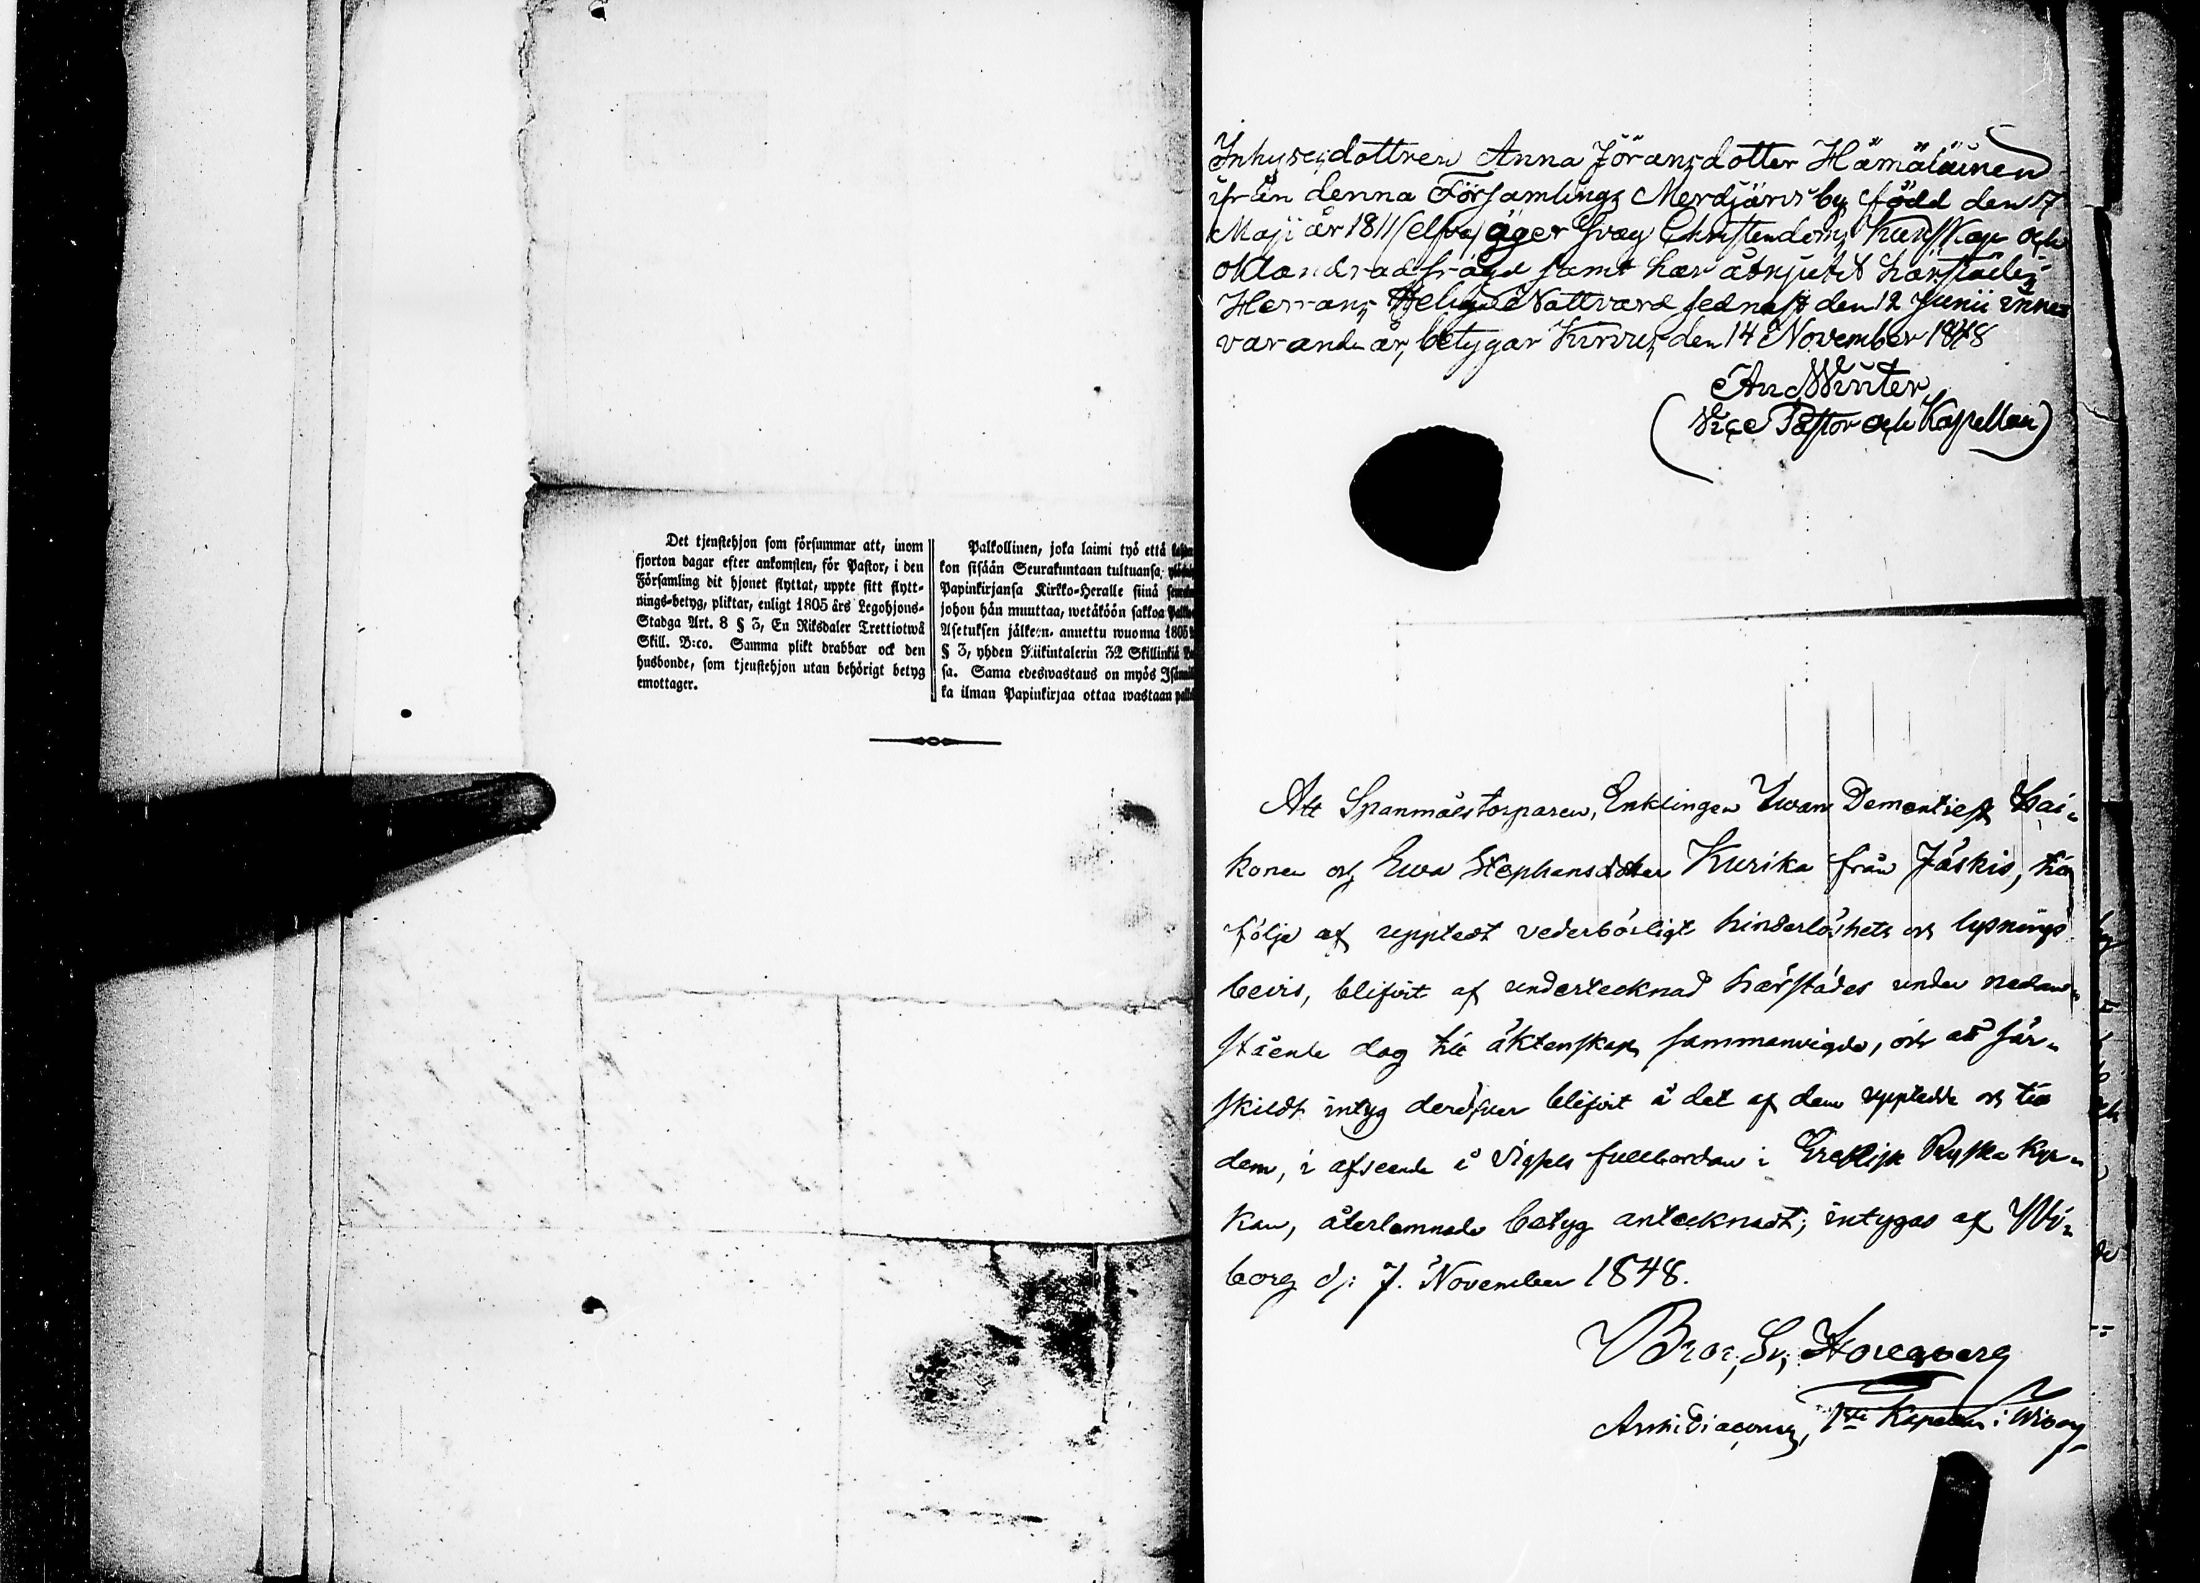 Det tjenstehjon som försummar att, inom
fjorton dagar efter ankomsten, för Pastor, i den
Församling dit hjonet flyttat, uppte sitt flytt-
nings-betyg, pliktar, enligt 1805 års Legohjons-
Stadga Art. 8 § 3, En Riksdaler Trettiotwå
Skill. B:co. Samma plikt drabbar ock den
husbonde, som tjenstehjon utan behörigt betyg
emottager.
Palkollinen, joka laimi työ että
kon sisään Seurakuntaan tultuansa,
Papinkirjansa Kirkko-Heralle siinä
johon hän muuttaa, wetäköön sakkoa
Asetuksen jälkeen, annettu wuonna 1805
§ 3, yhden Riikintalerin 32 Skillinkiä
sa. Sama edeswastaus on myös
ka ilman Papinkirjaa ottaa wastaan
Inhysesdottren Anna Jöransdotter Hämäläinen
ifrån denna Församlings Merdjärvi by född den 17
Maji år 1811 (elfva) äger svag Christendoms kunskap och
oklandrad frägd samt har åtnjutit härstädes
Herrans Heliga Nattvard sednast den 12 Junii inne
varande år, betygar Kirvus den 14 November 1848
And Winter
(Vice Pastor och Kapellan)
Att Spanmålstorparen, Enklingen Iwan Dementieff Lai-
konen och Ewa Stephansdotter Kurika från Jäskis, till
följe af upptedt vederbörligt hinderlöshets och lysnings
bevis, blifvit af undertecknad härstädes under nedan-
stående dag till äktenskap sammanvigde, och att sär-
skildt intyg deröfver blifvit å det af dem uppteddde och till
dem, i afseende å vigsels fullbordan i Grekisk Ryska Kyr-
kan, återlemnade betyg antecknadt; intygas af Wi-
borg d: 7. November 1848.
Archi Diaconus, 1ste Kapellan i Wiborg